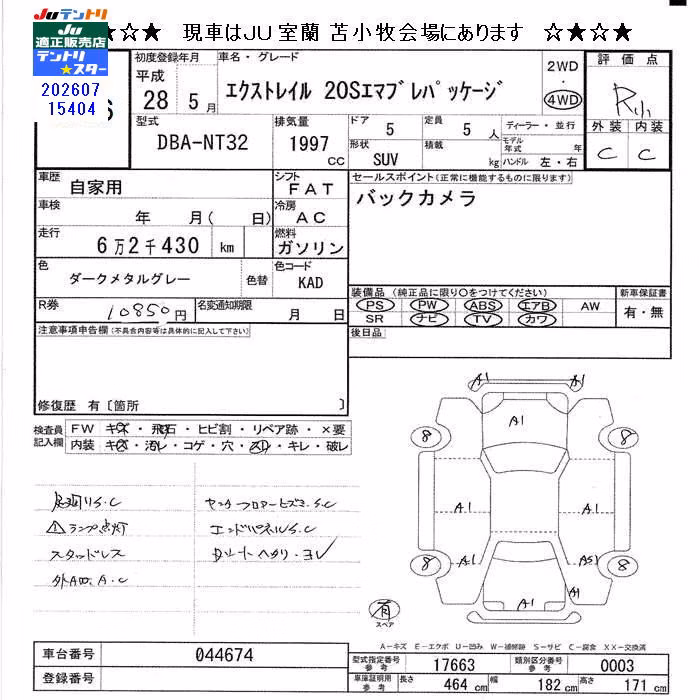 JUテントリ
JU
適正販売店
テントリ
★スター
☆★☆ 現車はJU室蘭 苫小牧会場にあります ☆★☆★
202607
15404
初度登録年月
平成
28 5月
車名・グレード
エクストレイル 20Sエマブレパッケージ
2WD
・
4WD
評価点
R小
外装 内装
C C
型式
DBA-NT32
排気量
1997
CC
ドア 5
形状 SUV
定員 5 人
積載 kg
ディーラー・並行
モデル年式 年
ハンドル 左・右
車歴 自家用
シフト FAT
セールスポイント(正常に機能するものに限ります)
バックカメラ
車検 年 月( 日)
冷房 AC
走行 6万2千430 km
燃料 ガソリン
色 ダークメタルグレー 色替
色コード KAD
R券 10850円
名変通知期限 月 日
装備品 (純正品に限り○をつけてください)
新車保証書
PS PW ABS エアB AW
有・無
SR ナビ TV カワ
後日品
注意事項申告欄(不具合内容等は具体的に記入して下さい)
修復歴 有〔箇所 〕
検査員
記入欄
FW キズ・飛石・ヒビ割・リペア跡・×要
内装 キズ・汚レ・コゲ・穴・スリ・キレ・破レ
下廻りS.C
⚠ランプ点灯
スタッドレス
センターフロアーヒズミ.S.C
エンドパネルS.C
A1 A1
A1
8 8
A1 A1
A1 AS1
8 8
A1
A1
有
スペア
A-キズ E-エクボ U-凹み W-補修跡 S-サビ C-腐食 XX-交換済
車台番号 044674
登録番号
型式指定番号
参考
17663
類別区分番号
参考
0003
車庫証明用
参考
長さ 464 cm
幅 182 cm
高さ 171 cm